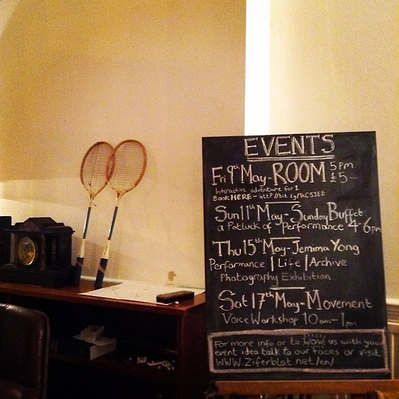 EVENTS
Fri 9th May - ROOM 5pm £5-
Interactive adventure for 1
Book HERE -
Sun 11th May - Sunday Buffet
a Potluck of Performance 4-6pm
Thu 15th May - Jemima Yong
Performance | Life | Archive
Photography Exhibition
Sat 17th May - Movement
Voice Workshop 10am-1pm
For more info or to WOW us with your
event idea talk to our faces or visit
WWW.Ziferblat.net/en/